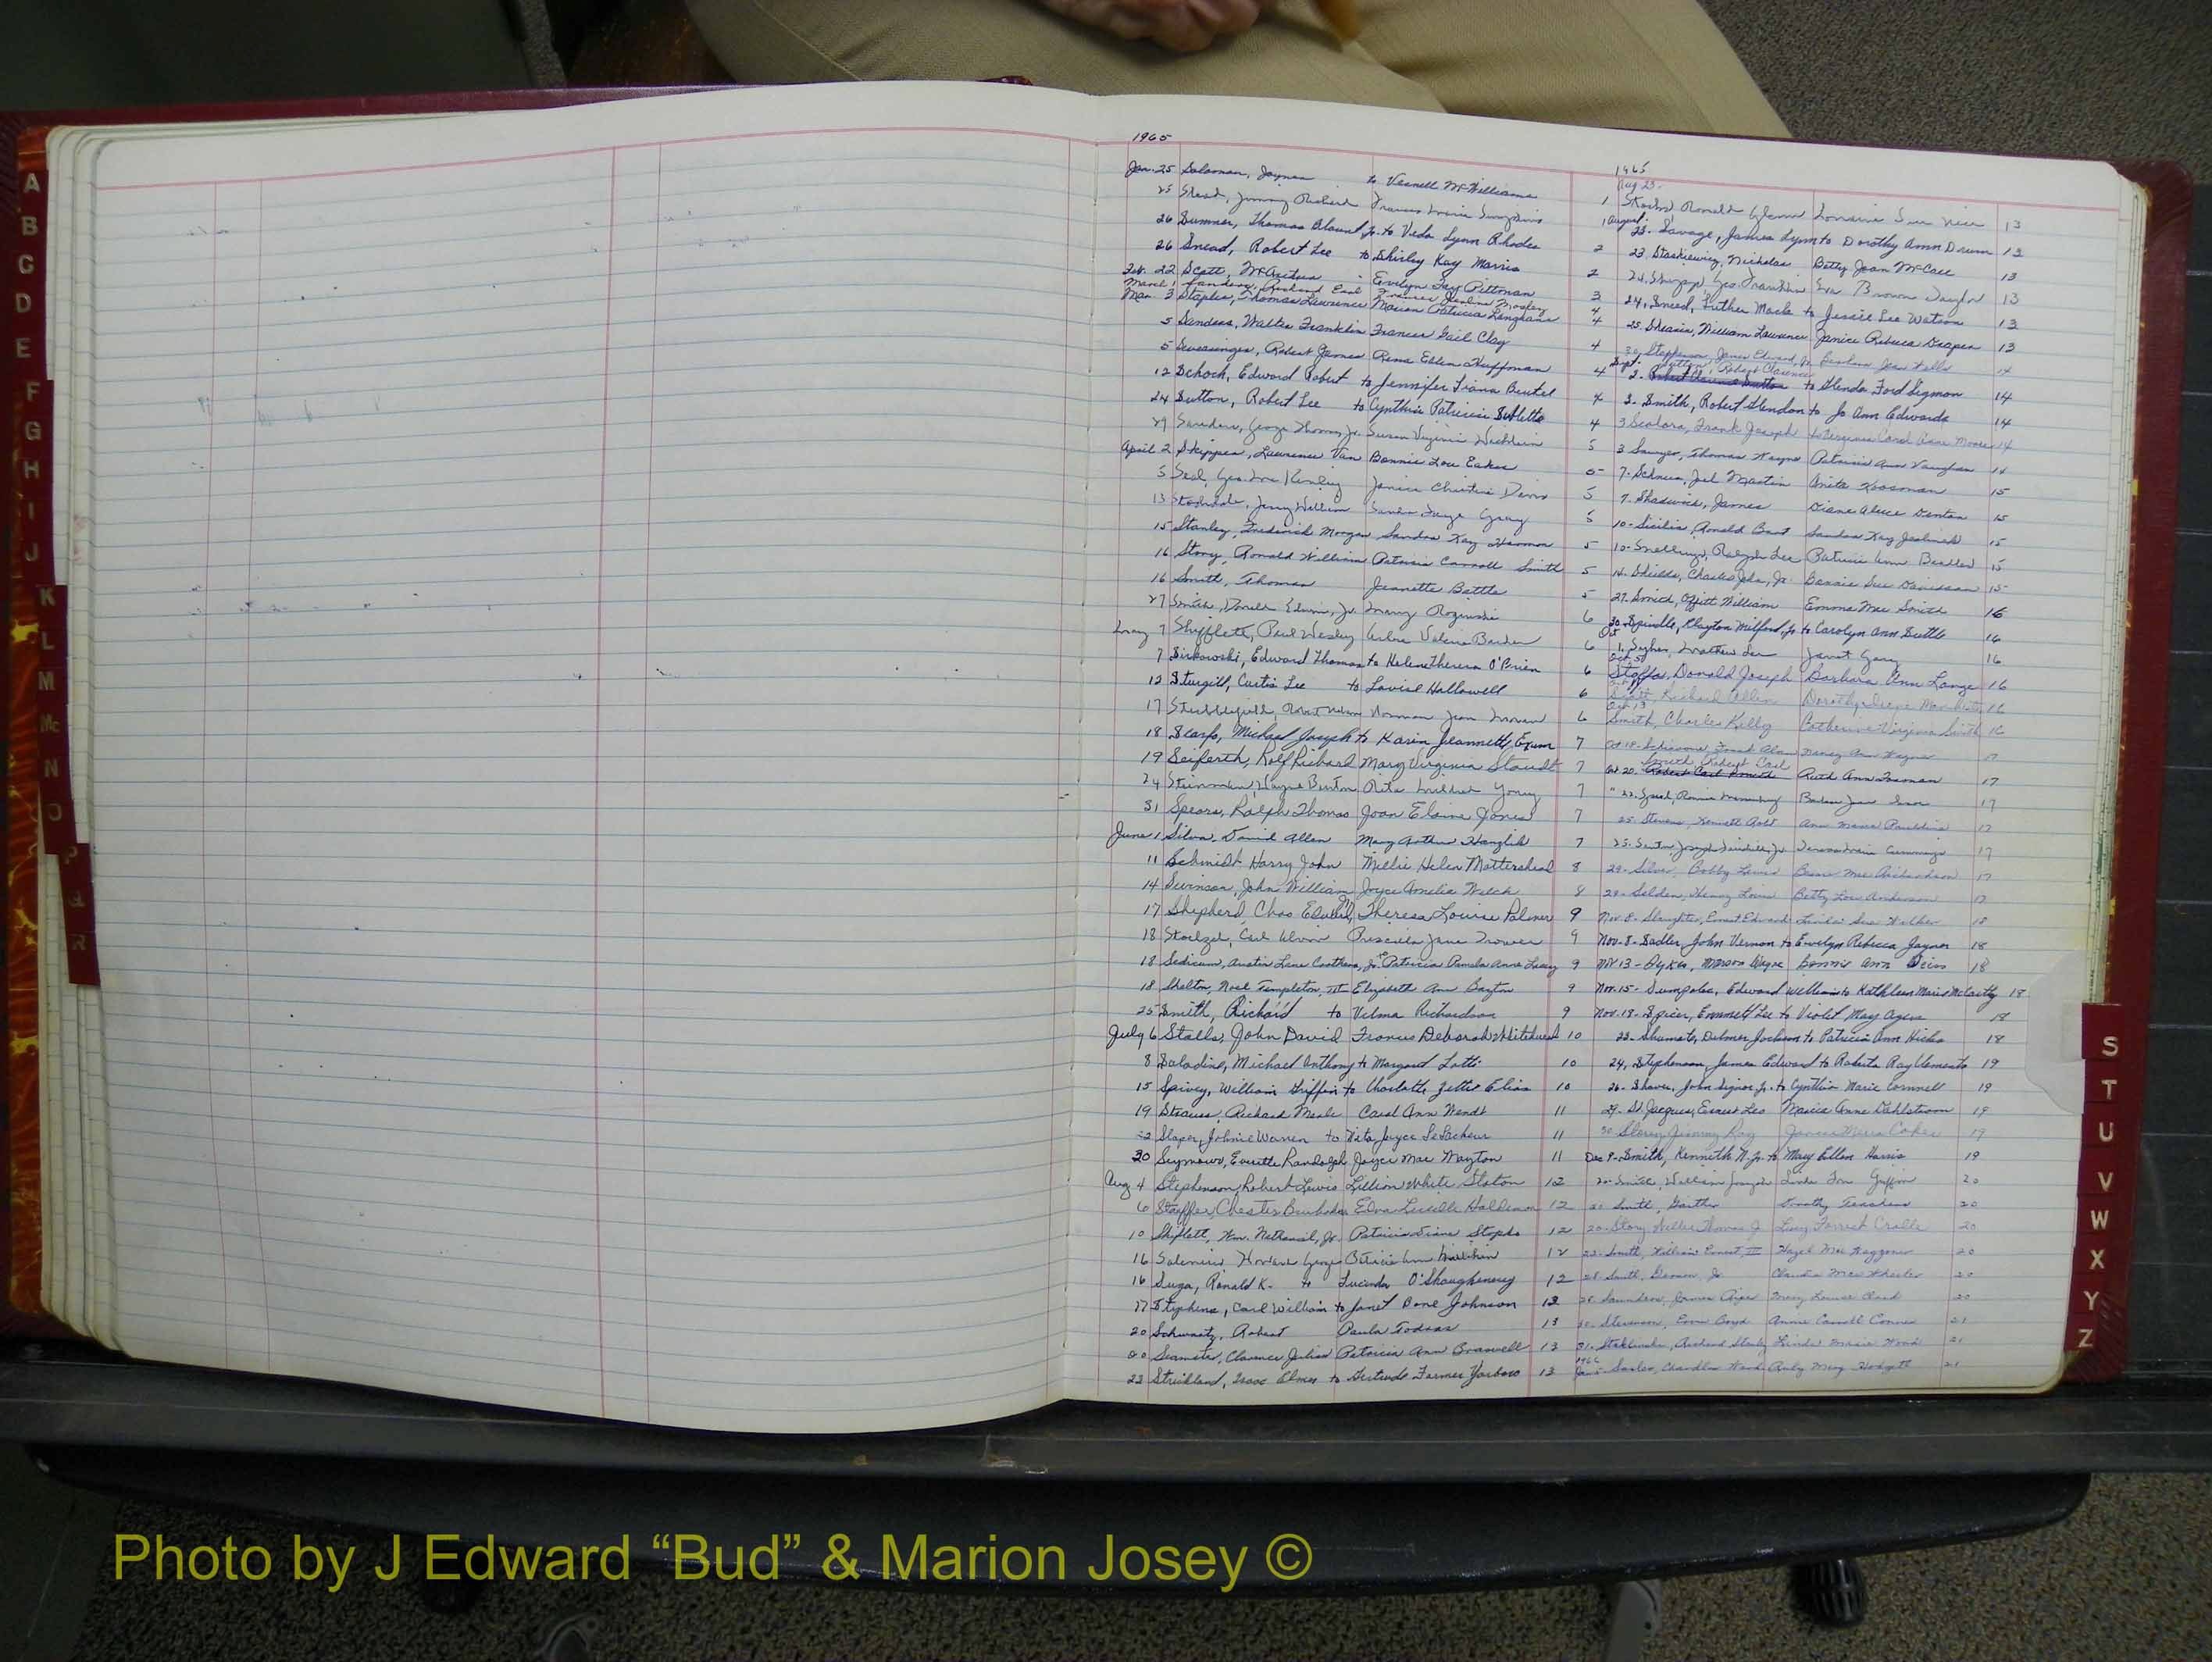 A
B
C
D
E
F
G
H
I
J
K
L
M
Mc
N
O
P
Q
R
1965
Jan. 25 Solomon, Jaynes to Vernell McWilliams 1
25 Stead, Jimmy Richard Frances Marie 1
26 Sumner, Thomas Blount, Jr. to Veda Lynn Rhodes 2
26 Snead, Robert Lee to Shirley Kay Morris 2
Feb. 22 Scott, McArthur Evelyn Fay Pittman 3
March 1 Sanders, Richard Earl Frances Mosley 4
Mar. 3 Staples, Thomas Lawrence Marion Patricia Langhans 4
5 Sanders, Walter Franklin Frances Gail Clay 4
5 Robert James Rena Ellen Huffman 4
12 Schoch, Edward Robert to Jennifer Beutel 4
24 Sutton, Robert Lee to Cynthia Patricia Sublette 4
29 Saunders, George Thomas, Jr. Susan Virginia 5
April 2 Skipper, Lawrence Van Bonnie Lou Eakes 5
5 Seal, Geo. Janice Christine Davis 5
13 Jerry William Sandra Faye Gray 5
15 Stanley, Frederick Morgan Sandra Kay Harmon 5
16 Story, Ronald William Patricia Carroll Smith 5
16 Smith, Thomas Jeanette Battle 5
27 Smith, Donald Edwin, Jr. Mary 6
May 7 Shifflett, Paul Wesley Valerie Barden 6
7 Sirkowski, Edward Thomas to Helene Theresa O'Brien 6
12 Sturgill, Curtis Lee to Louise Hallowell 6
17 Stubblefield, Robert Norman Jean 6
18 Scarfo, Michael Joseph to Karin Jeannette Exum 7
19 Seiferth, Rolf Richard Mary Virginia Staudt 7
24 Steinman, Wayne Burton Rita Mildred Young 7
31 Spears, Ralph Thomas Joan Elaine Jones 7
June 1 Silva, David Allen Mary Arthur Hanzlik 7
11 Schmidt Harry John Millie Helen Mottershead 8
14 Swinson, John William Joyce Amelia Welch 8
17 Shepherd, Chas Edward, Jr. Theresa Louise Palmer 9
18 Stoelzel, Carl Alvin Priscilla Jane Trower 9
18 Sedicum, Austin Lane Carothers, Jr. Patricia Pamela Anne 9
18 Shelton, Noel Templeton, III Elizabeth Ann Bazton 9
25 Smith, Richard to Velma Richardson 9
July 6 Stalls, John David Frances Deborah Whitehurst 10
8 Saladino, Michael Anthony to Margaret Lotti 10
15 Spivey, William Griffin to Charlotte Jetter Elias 10
19 Strauss, Richard Merle Carol Ann Wendt 11
22 Slaper, Johnie Warren to Nita Joyce LeSacheur 11
30 Seymour, Everette Randolph Joyce Mae Wayton 11
Aug 4 Stephenson, Robert Lewis Lillian White Slaton 12
6 Stauffer, Chester Burkholder Edna Lucille Haldeman 12
10 Shiflett, Wm. Nathaniel, Jr. Patricia Diane Stopka 12
16 Howard George Patricia Ann 12
16 Suga, Ronald K. to Lucinda O'Shaughenery 12
17 Stephens, Carl William to Janet Bone Johnson 12
20 Schwartz, Robert Paula 13
20 Clarence Julian Patricia Ann Braswell 13
23 Strickland, Isaac Elmer to Gertrude Farmer Yarboro 13
1965
Aug 23. Ronald Glenn Lorraine Sue 13
August 23. Savage, James Lynn to Dorothy Ann Drum 13
23 Staskiewicz, Nicholas Betty Jean McCall 13
24. Geo. Franklin Eva Brown Taylor 13
24. Sneed, Luther Mack to Jessie Lee Watson 13
25. Shearin, William Lawrence Janice Rebecca Draper 13
30 Stephenson, James Edward, Jr. Barbara Jean 14
Sutton, Robert Clarence
Sept. 2. Robert Clarence Sutton to Glenda Ford Segmon 14
3. Smith, Robert Glendon to Jo Ann Edwards 14
3 Scolora, Frank Joseph to Virginia Carol Anne Moore 14
3 Sawyer, Thomas Wayne Patricia Ann Vaughan 14
7. Martin Anita 15
7. Shadwick, James Diane Alice Denton 15
10- Sicilia, Ronald Sandra Kay 15
10- Snellings, Ralph Lee Patricia Ann 15
14. Shields, Charles John, Jr. Bonnie Sue Davidson 15
27. Smith, Offitt William Emma Mae Smith 16
30. Spindle, Clayton Milford, Jr. to Carolyn Ann Suttle 16
Oct 1. Sykes, Walter Lee Janet Gary 16
Oct 5 Stoffa, Donald Joseph Barbara Ann Lange 16
Scott, Richard Allen Dorothy Irene 16
Oct 13 Smith, Charles Kelly Catherine Virginia Smith 16
Oct 18- Frank Alan Nancy Ann Wagner 17
Smith, Robert Carl
Oct 20. Robert Carl Smith Ruth Ann Freeman 17
" 22. 17
25 Stevens, Kenneth Robt Ann Maria 17
25. 17
29- Silver, Bobby Lewis Bessie Mae Richardson 17
29- Selden, Henry Louis Betty Lou Anderson 17
Nov. 8- Slaughter, Ernest Edward Linda Sue Walker 18
Nov. 8- Sadler, John Vernon to Evelyn Rebecca Joyner 18
Nov 13- Sykes, Marson Wayne Bonnie Ann Weiss 18
Nov. 15- Sumpolec, Edward William to Kathleen Marie McCarthy 18
Nov. 18- Spicer, Emmett Lee to Violet May Ayers 18
23- Shumate, Delmer Jackson to Patricia Ann Hicks 18
24, Stephenson, James Edward to Roberta Ray Clements 19
26- Shaver, John Signor, Jr. to Cynthia Marie Cornnell 19
29- St. Jacques, Ernest Leo Marcia Anne Dahlstrom 19
30 Storey, Jimmy Ray Janice Maria Cokes 19
Dec 9- Smith, Kenneth N. Jr. to Mary Ellen Harris 19
20- Smith, William Joseph Linda Griffin 20
20 Smith, Dorothy 20
20- Story, Willie Thomas J Lucy Forrest Cralle 20
23- Smith, William Ernest, III Hazel Mae Waggoner 20
28- Smith, Jr. Claudia Mae Wheeler 20
28- Saunders, James Mary Louise Clark 20
30- Stevenson, Boyd Annie Carroll Conner 21
31- Richard Linda Marie Wood 21
1966
Jan 5- Chandler Ward Ruby May 21
S
T
U
V
W
X
Y
Z
Photo by J Edward “Bud” & Marion Josey ©